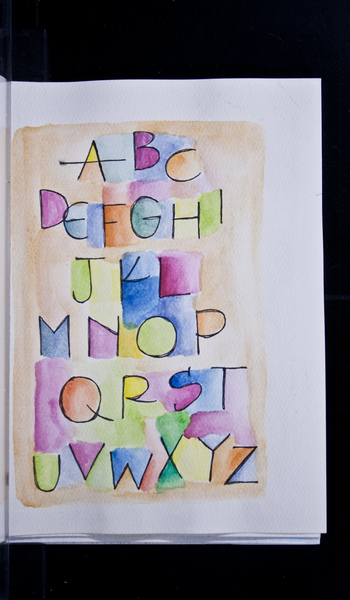 ABC
DEFGHI
JKL
MNOP
QRST
UVWXYZ